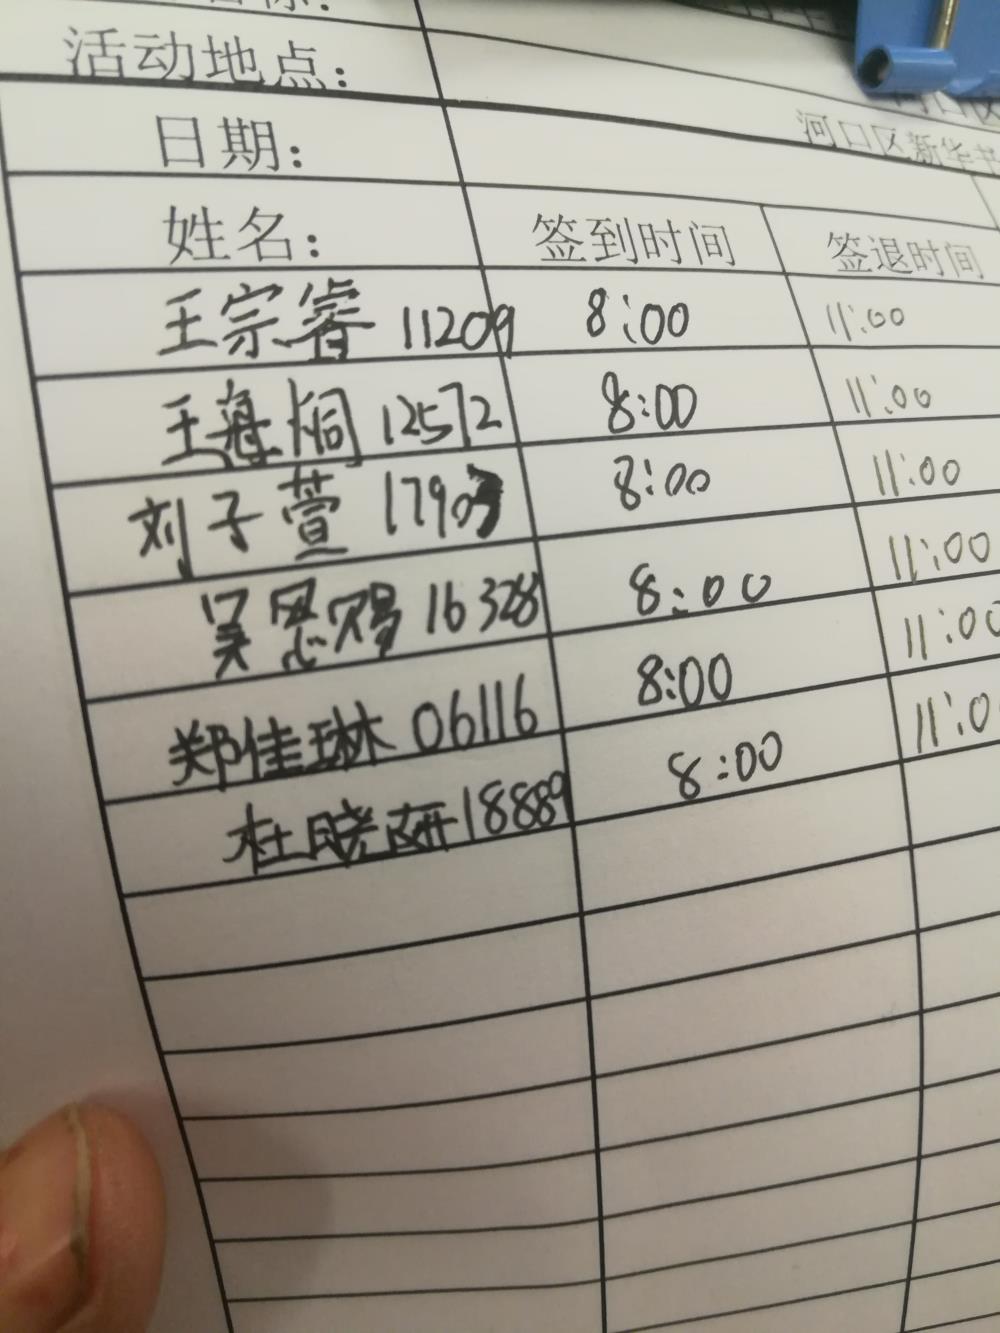 活动地点:
河口区新华书
日期:
姓名: 签到时间 签退时间
王宗睿 11209 8:00 11:00
王 12572 8:00 11:00
刘子萱 8:00 11:00
吴恩赐 16328 8:00 11:00
郑佳琳 06116 8:00 11:00
杜晓妍 18889 8:00 11:0